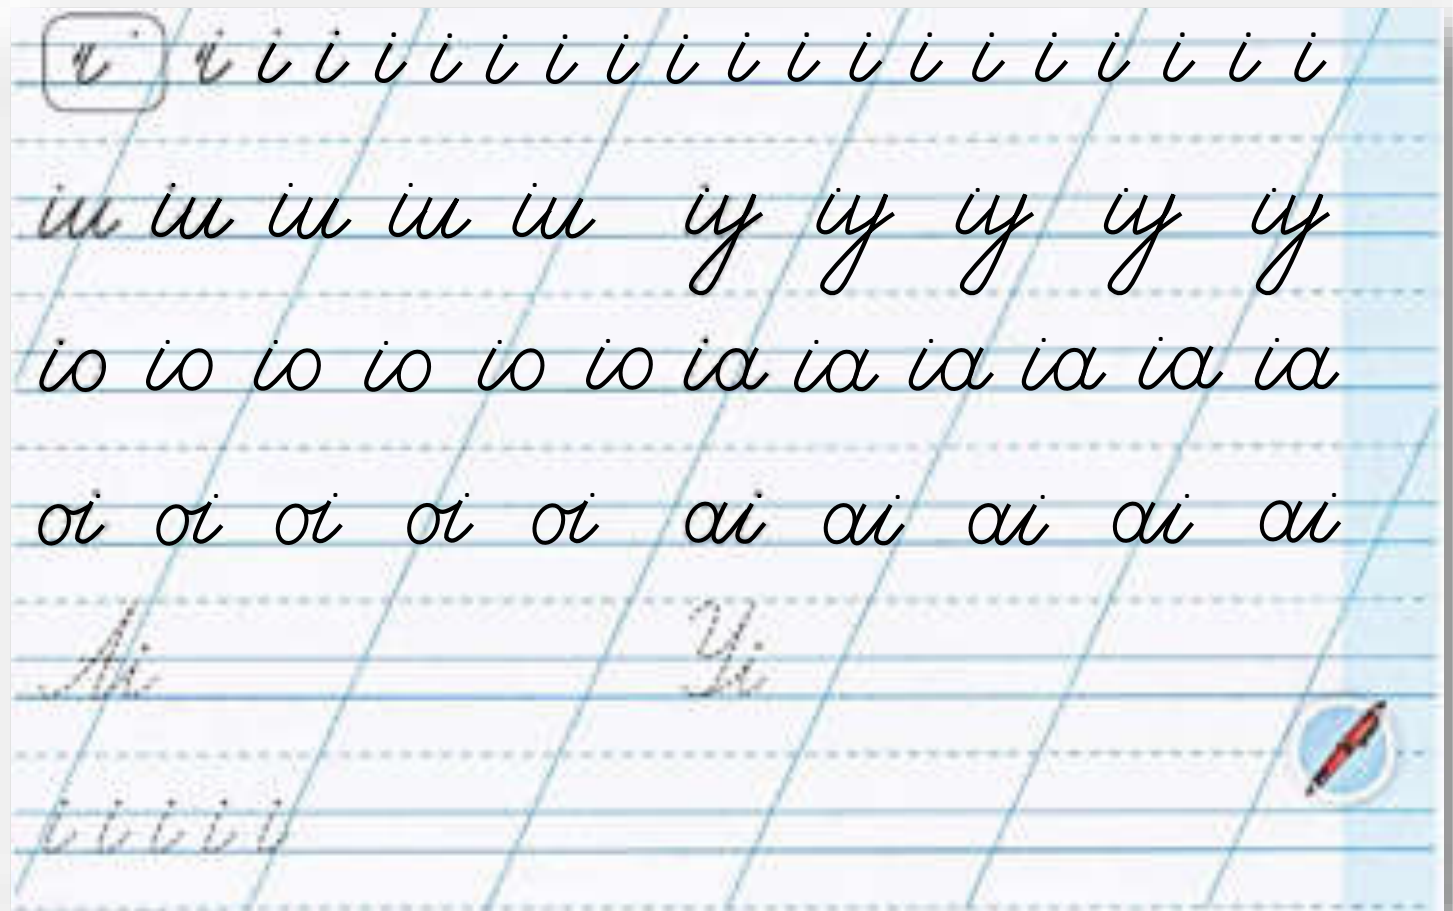 і і і і і і і і і і і і і і і і і і і і
іи іи іи іи іи іу іу іу іу іу
іо іо іо іо іо іо іа іа іа іа іа іа
оі оі оі оі оі аі аі аі аі аі
Аі Уі
і і і і і